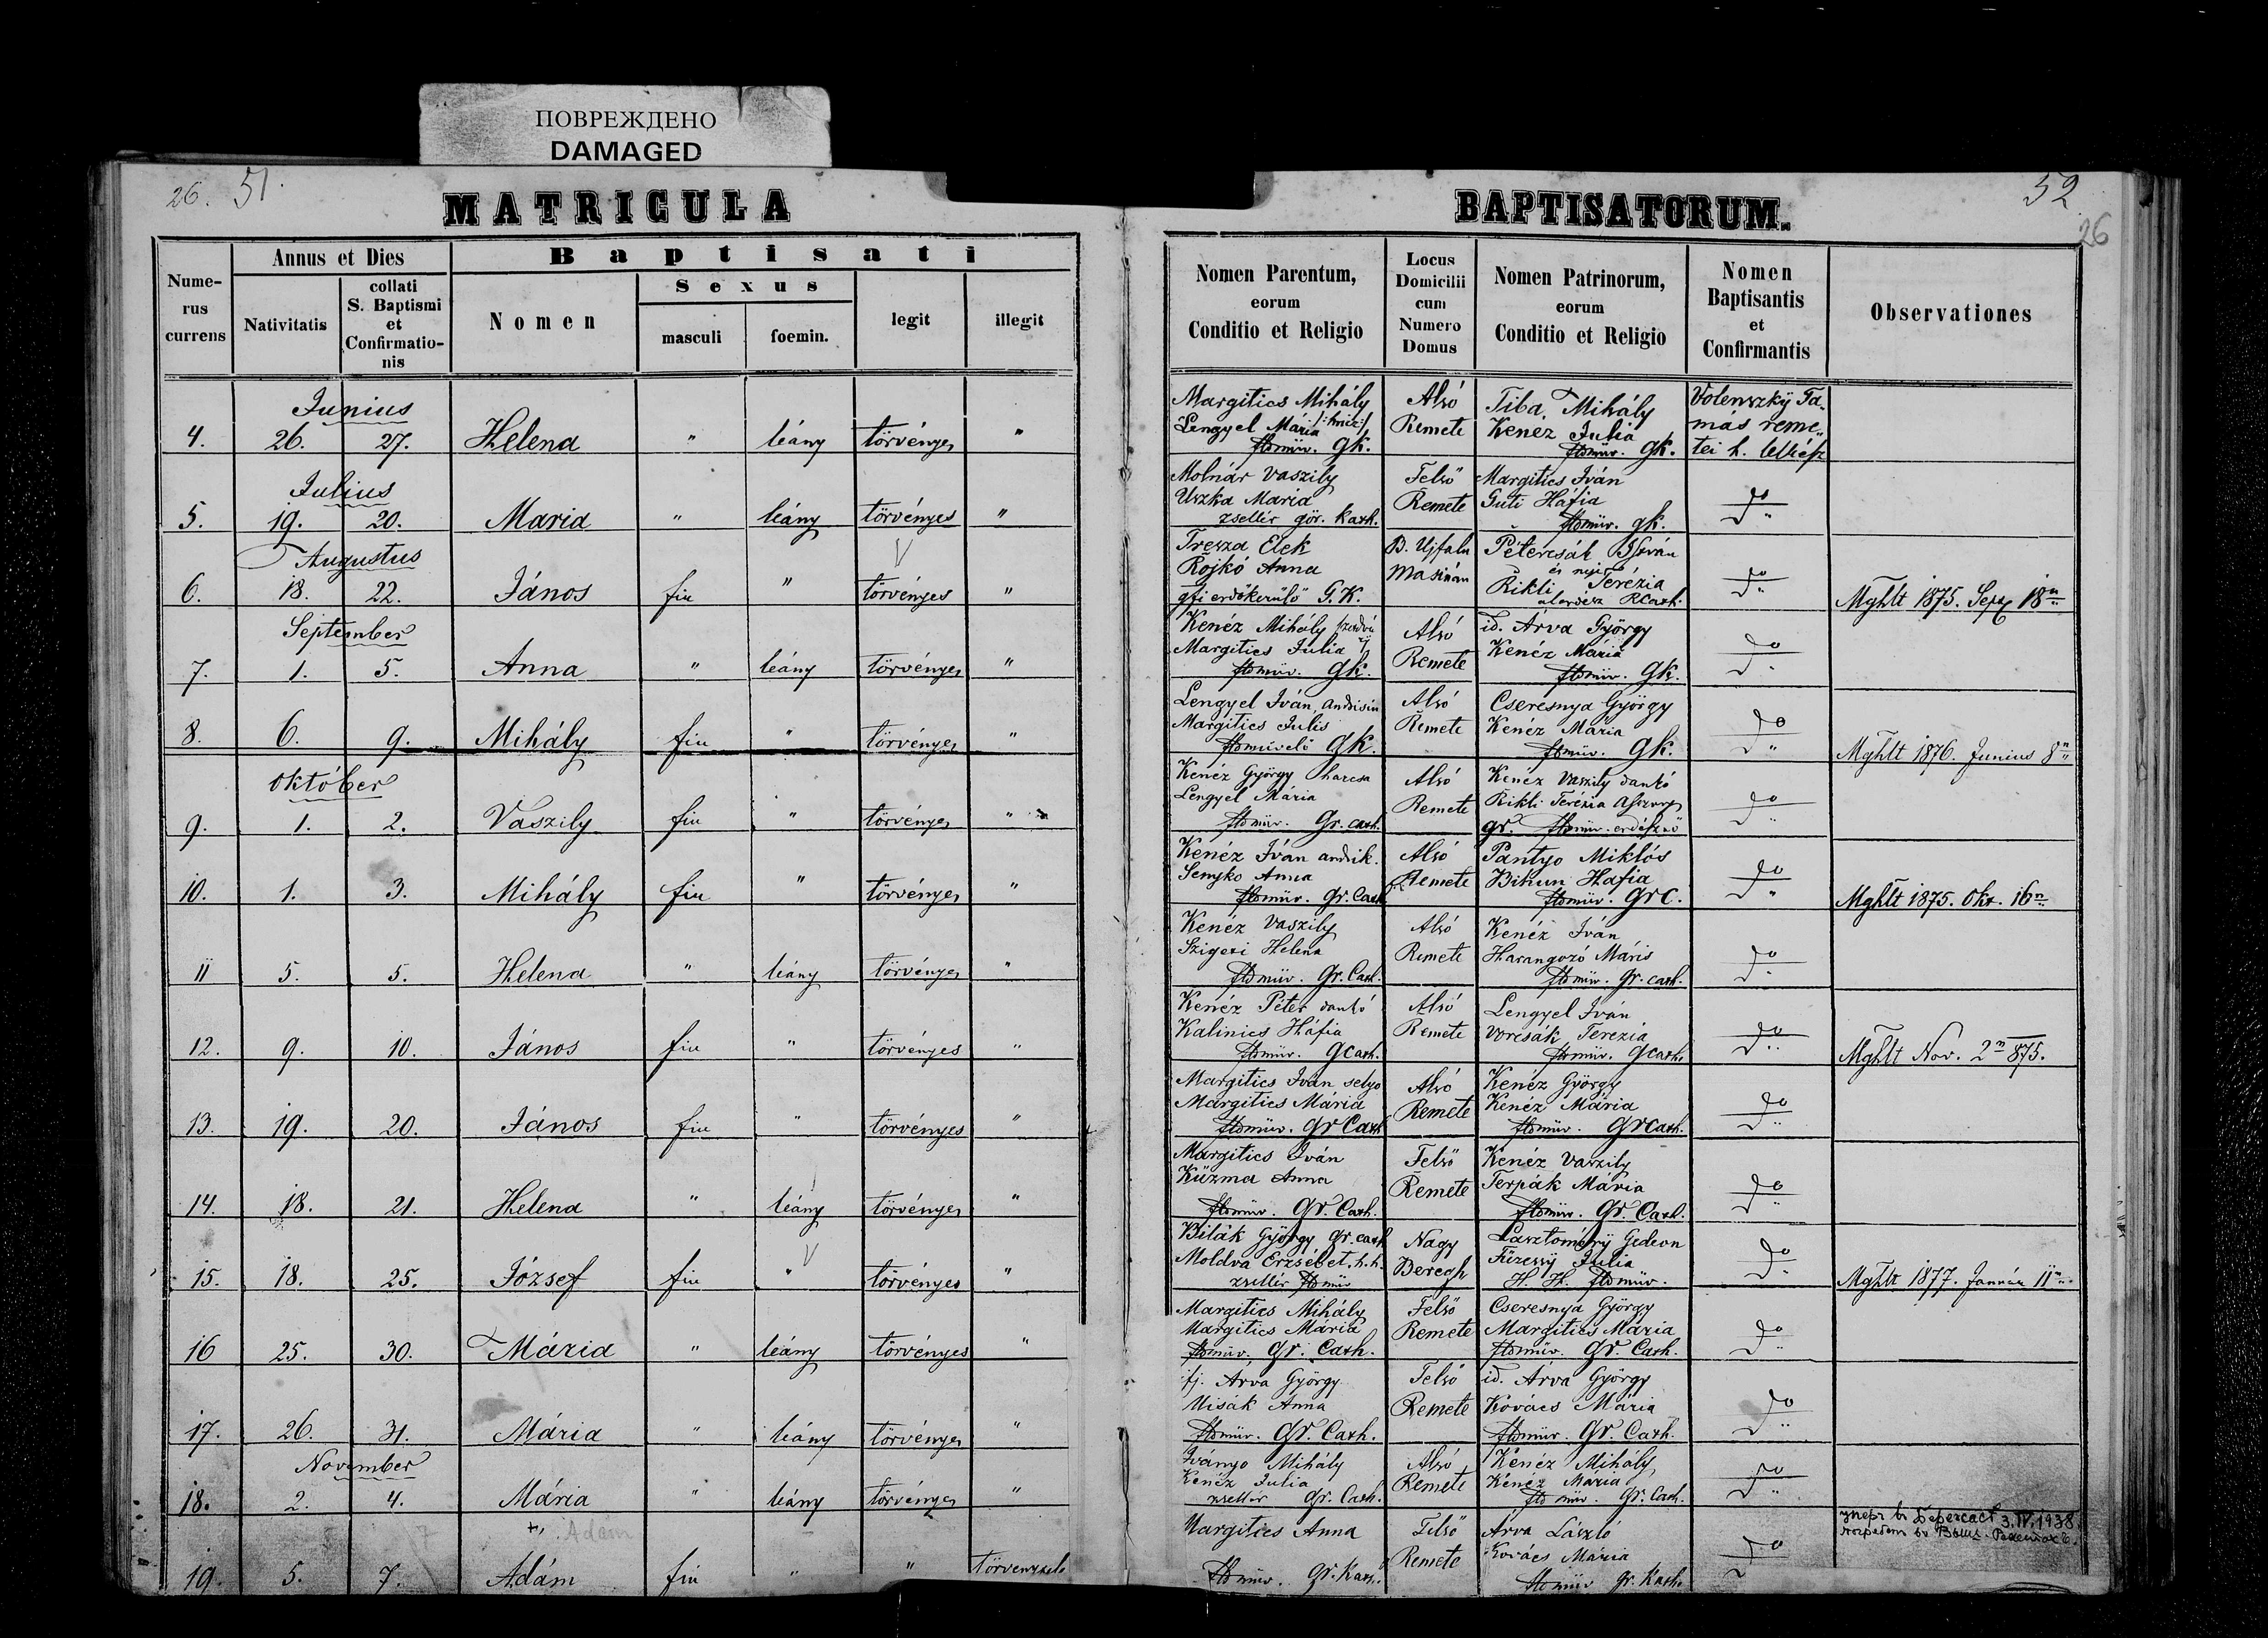 ПОВРЕЖДЕНО
DAMAGED
26. 51.
MATRICULA
Nume-
rus
currens
Annus et Dies
Nativitatis
collati
S. Baptismi
et
Confirmatio-
nis
Baptisati
Nomen
Sexus
masculi
foemin.
legit
illegit
Junius
4. 26. 27. Helena " leány törvényes "
Julius
5. 19. 20. Maria " leány törvényes "
Augustus
6. 18. 22. János fiu " törvényes "
September
7. 1. 5. Anna " leány törvényes "
8. 6. 9. Mihály fiu " törvényes "
Október
9. 1. 2. Vaszily fiu " törvényes "
10. 1. 3. Mihály fiu " törvényes "
11 5. 5. Helena " leány törvényes "
12. 9. 10. János fiu " törvényes "
13. 19. 20. János fiu " törvényes "
14. 18. 21. Helena " leány törvényes "
15. 18. 25. József fiu " törvényes "
16 25. 30. Mária " leány törvényes "
17. 26. 31. Mária " leány törvényes "
November
18. 2. 4. Mária " leány törvényes "
Adam
19. 5. 7. Adám fiu " "
52
26
BAPTISATORUM.
Nomen Parentum,
eorum
Conditio et Religio
Locus
Domicilii
cum
Numero
Domus
Nomen Patrinorum,
eorum
Conditio et Religio
Nomen
Baptisantis
et
Confirmantis
Observationes
Margitics Mihály Alsó Tiba Mihály Volenszky Ta-
Lengyel Mária Remete Kenéz Julia más reme-
földmüv. gk. földmüv. gk. tei h. lelkész
Molnár Vaszily Felső Margitics Iván
Uszka Maria Remete Guti Háfia do
zsellér gör. kath. földmüv. gk.
Tresza Elek B. Ujfalu Petercsák István
Rojkó Anna és neje
erdőkerülő G.K. Rikli Terézia do
RCath. Mghlt 1875. Sept 18n
Kenéz Mihály Alsó id. Árva György
Margitics Julia Remete Kenéz Mária do
földmüv. gk. földmüv. gk.
Lengyel Iván, Alsó Cseresnya György
Margitics Julis Remete Kenéz Mária do
földmüvelő gk. földmüv. gk. Mghlt 1876. Junius 8n
Kenéz György harcsa Alsó Kenéz Vaszily dankó
Lengyel Mária Remete Rikli Terézia do
földmüv. Gr. cath. gr. földmüv.
Kenéz Iván andrik. Alsó Pantyo Miklós
Senyko Anna Remete Bihun Hafia do
földmüv. Gr. Cath. földmüv. GrC. Mghlt 1875. Okt. 16n
Kenéz Vaszily Alsó Kenéz Iván
Szigeti Helena Remete Harangozó Máris do
földmüv. Gr. Cath. földmüv. Gr. cath.
Kenéz Péter dankó Alsó Lengyel Iván
Kalinics Háfia Remete Vorcsák Terezia do
földmüv. gcath. földmüv. gcath. Mghlt Nov. 2n 875.
Margitics Iván selyo Alsó Kenéz György
Margitics Mária Remete Kenéz Mária do
földmüv. Gr Cath földmüv. GrCath.
Margitics Iván Felső Kenéz Vaszily
Küzma Anna Remete Terpák Mária do
földmüv. Gr. Cath. földmüv. Gr. Cath.
Bilák György gr. cath Nagy Lasztoméry Gedeon
Moldva Erzsébet. h. h. Beregh Füzessy Julia do
zsellér földmüv H. H. földmüv. Mghlt 1877. Január 11n
Margitics Mihály Felső Cseresnya György
Margitics Mária Remete Margitics Mária do
földmüv. Gr. Cath. földmüv. Gr. Cath.
ifj. Árva György Felső id. Árva György
Misák Anna Remete Kovács Mária do
földmüv. Gr. Cath. földmüv. Gr. Cath.
Iványo Mihály Alsó Kenéz Mihály
Kenéz Julia Remete Kenéz Mária do
zsellér Gr. Cath. földmüv. Gr. Cath.
Margitics Anna Felső Árva László
Remete Kovács Mária do
földmüv. Gr. Kath. földmüv Gr. Kath.
3.IV.1938.